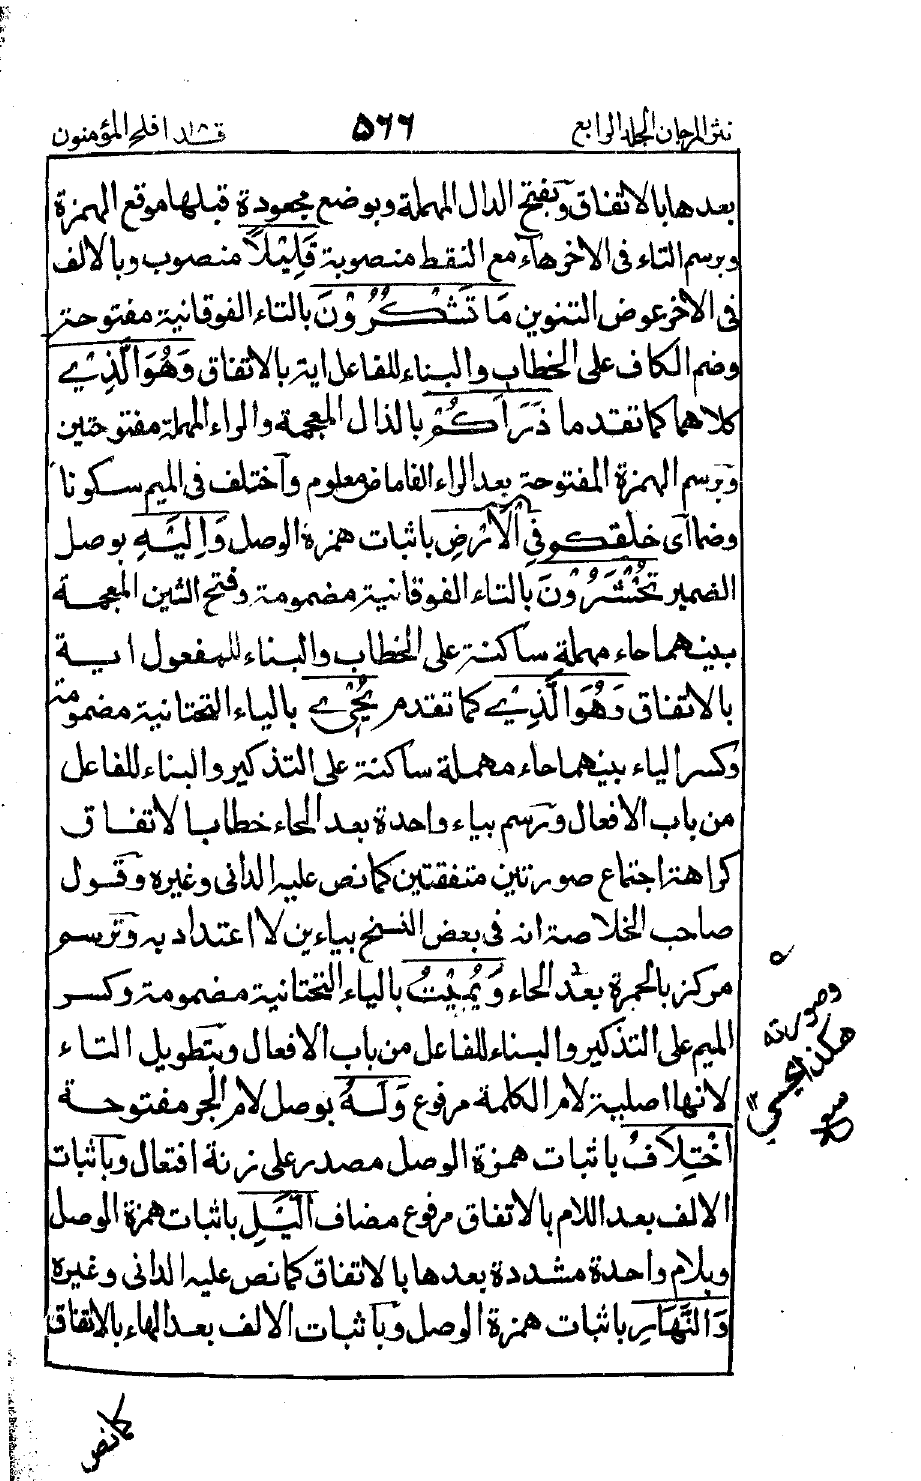 نثر المرجان الجلد الرابع ۵۶۶ قد افلح المؤمنون
بعدها بالاتفاق وبفتح الدال المهملة وبوضع مجعودة قبلها موقع الهمزة
وبرسم التاء فى الاخرهاء مع النقط منصوبة قَلِيْلًا منصوب وبالالف
فى الاخر عوض التنوين مَا تَشْكُرُوْنَ بالتاء الفوقانية مفتوحة
وضم الكاف على الخطاب والبناء للفاعل اية بالاتفاق وَهُوَ الَّذِيْ
كلاهما كما تقدما ذَرَأَكُمْ بالذال المعجمة والراء المهملة مفتوحتين
وبرسم الهمزة المفتوحة بعد الراء الفا ماض معلوم واختلف فى الميم سكونا
وضما اى خلقكم فِى الْاَرْضِ باثبات همزة الوصل وَاِلَيْهِ بوصل
الضمير تُحْشَرُوْنَ بالتاء الفوقانية مضمومة وفتح الشين المعجمة
بينهما حاء مهملة ساكنة على الخطاب والبناء للمفعول اية
بالاتفاق وَهُوَ الَّذِيْ كما تقدم يُحْيٖ بالياء التحتانية مضمومة
وكسر الياء بينهما حاء مهملة ساكنة على التذكير والبناء للفاعل
من باب الافعال وترسم بياء واحدة بعد الحاء خطا بالاتفاق
كراهة اجتماع صورتين متفقتين كما نص عليه الدانى وغيره وقول
صاحب الخلاصة انه فى بعض النسخ بياءين لا اعتداد به وترسم
مركز بالحمرة بعد الحاء وَيُمِيْتُ بالياء التحتانية مضمومة وكسر
الميم على التذكير والبناء للفاعل من باب الافعال وبتطويل التاء
لانها اصلية لام الكلمة مرفوع وَلَهُ بوصل لام الجر مفتوحة
اخْتِلَافُ باثبات همزة الوصل مصدر على زنة افتعال وباثبات
الالف بعد اللام بالاتفاق مرفوع مضاف الَّيْلِ باثبات همزة الوصل
وبلام واحدة مشددة بعدها بالاتفاق كما نص عليه الدانى وغيره
وَالنَّهَارِ باثبات همزة الوصل وباثبات الالف بعد الهاء بالاتفاق
وصورته
هكذا يحيٖ
كما نص